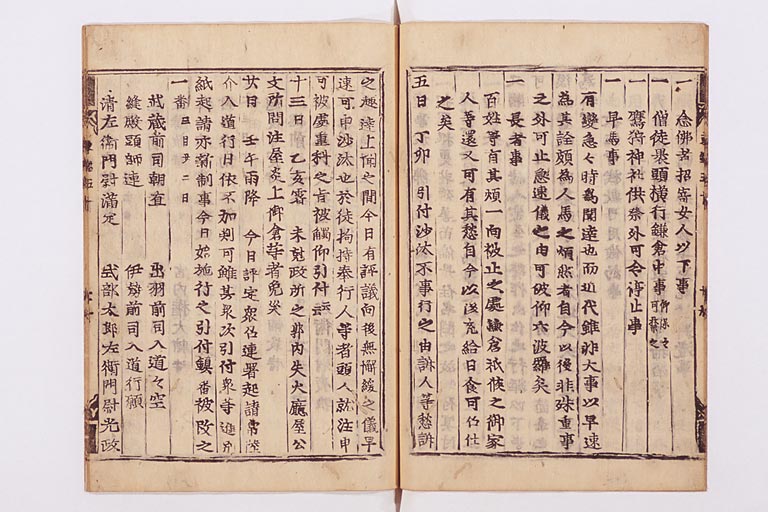 一 念佛者招寄女人以下事
一 僧徒裹頭横行鎌倉中事
一 鷹狩神社供祭外可令停止事
一 早馬事
有變急之時為聞達也而近代雖非大事以早速
為其詮頗為人馬之煩然者自今以後非殊重事
之外可止急速儀之由可被仰六波羅矣
一 長者事
百姓等有其煩一向被止之處鎌倉祇候之御家
人等還又可有其愁自今以後充給日食可召仕
之矣
五日 丁卯 引付沙汰不事行之由訴人等愁訴
之趣達上聞之間今日有評議向後無懈緩之儀早
速可申沙汰也於徒拘持奉行人等者頭人就注申
可被處重科之旨被觸仰引付云云
十三日 乙亥霽 未尅政所之郭内失火廳屋公
文所問注屋災上御倉等者免災
廿日 壬午雨降 今日評定衆召連署起請常陸
介入道行日依不加判可雖其衆次引付衆等
紙起請亦新制事今日始施行之引付鎮番被改之
一番 三日廿二日
武藏前司朝直 出羽前司入道々空
縫殿頭師連 伊勢前司入道行願
清左衛門尉滿定 武部太郎左衛門尉光政